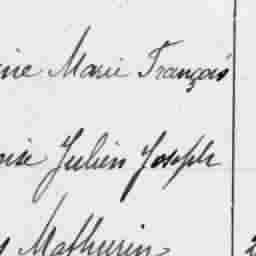 ine Marie François
oise Julien Joseph
Mathurin